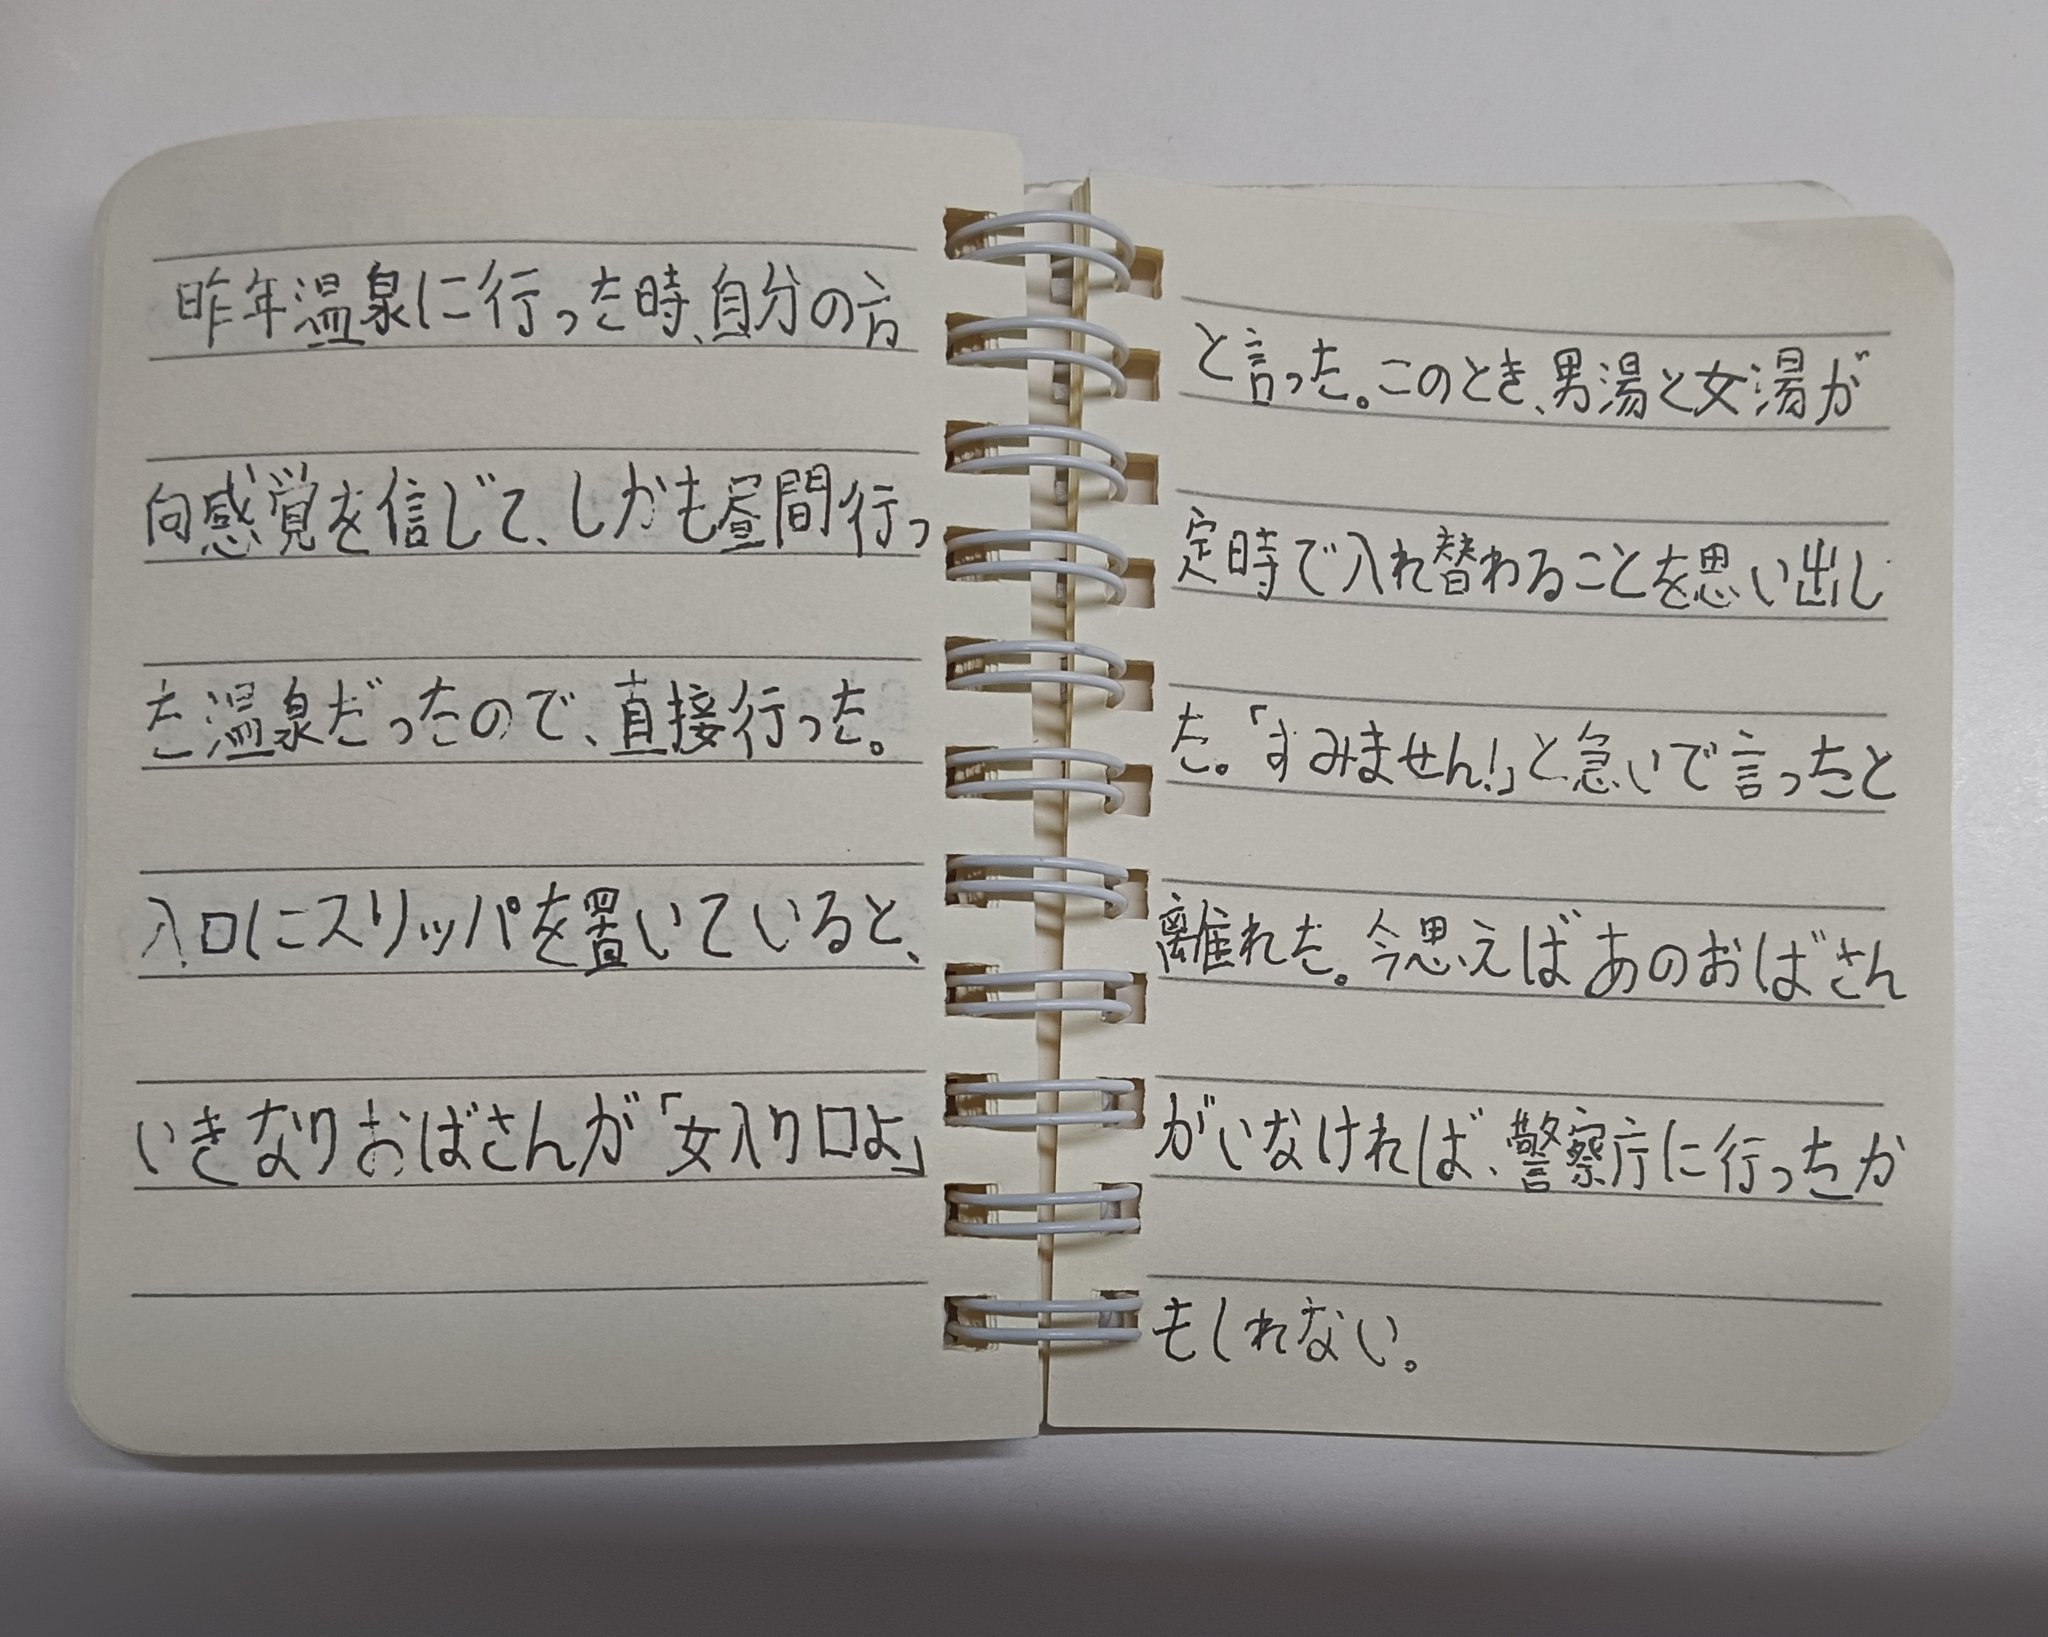 昨年温泉に行った時、自分の方
向感覚を信じて、しかも昼間行っ
た温泉だったので、直接行った。
入口にスリッパを置いていると、
いきなりおばさんが「女入り口よ」
と言った。このとき、男湯と女湯が
定時で入れ替わることを思い出し
た。「すみません!」と急いで言ったと
離れた。今思えばあのおばさん
がいなければ、警察庁に行ったか
もしれない。